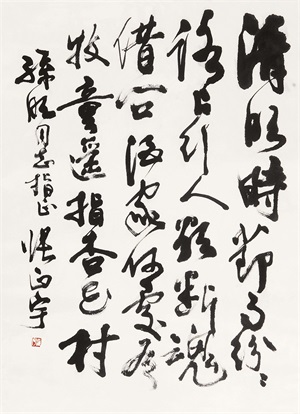 清明時節雨紛々
路上行人欲斷魂
借問酒家何處有
牧童遙指杏花村
同志指正 張正宇